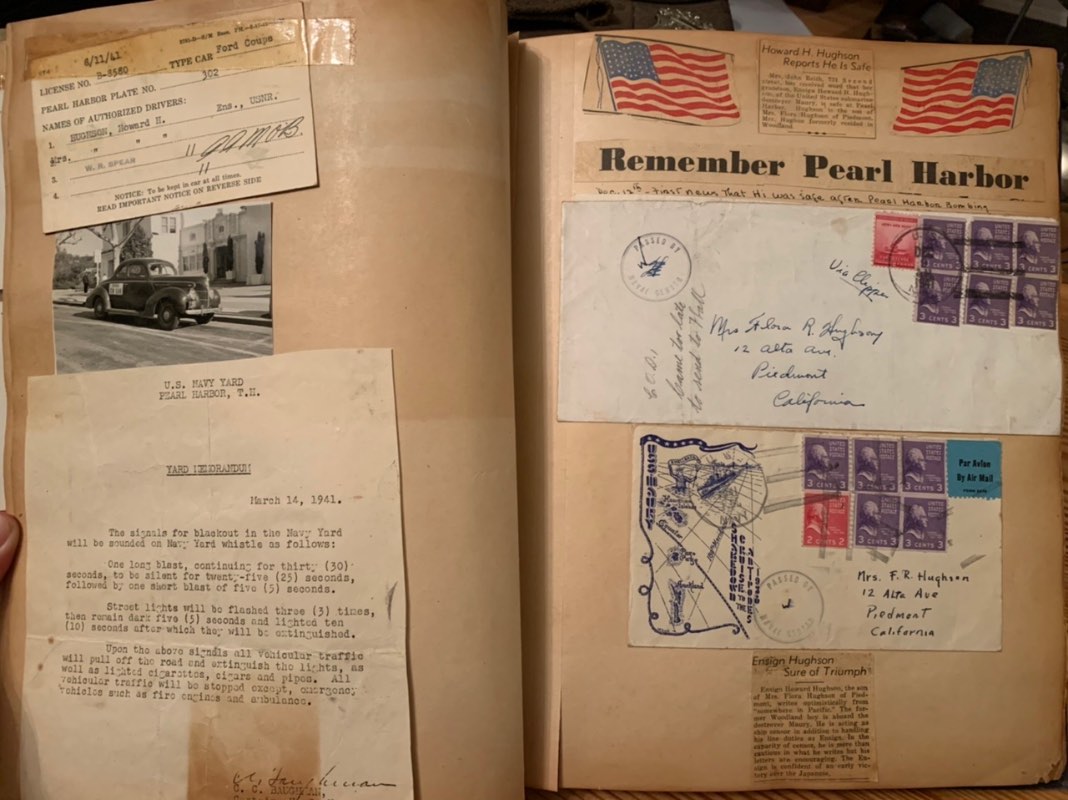 6/11/41
LICENSE NO. B-8580 TYPE CAR Ford Coupe
PEARL HARBOR PLATE NO. 302
NAMES OF AUTHORIZED DRIVERS:
1. HUGHSON, Howard H. Ens., USNR.
Mrs. " " "
3. W. R. SPEAR "
4.
NOTICE: To be kept in car at all times.
READ IMPORTANT NOTICE ON REVERSE SIDE
U.S. NAVY YARD
PEARL HARBOR, T.H.
YARD MEMORANDUM
March 14, 1941.
The signals for blackout in the Navy Yard
will be sounded on Navy Yard whistle as follows:
One long blast, continuing for thirty (30)
seconds, to be silent for twenty-five (25) seconds,
followed by one short blast of five (5) seconds.
Street lights will be flashed three (3) times,
then remain dark five (5) seconds and lighted ten
(10) seconds after which they will be extinguished.
Upon the above signals all vehicular traffic
will pull off the road and extinguish the lights, as
well as lighted cigarettes, cigars and pipes. All
vehicular traffic will be stopped except, emergency
vehicles such as fire engines and ambulance.
C. C. BAUGHMAN,
Howard H. Hughson
Reports He Is Safe
Mrs. John Reith, 751 Second
street, has received word that her
grandson, Ensign Howard H. Hugh-
son, of the United States submarine
destroyer Maury, is safe at Pearl
Harbor. Hughson is the son of
Mrs. Flora Hughson of Piedmont.
Mrs. Hughson formerly resided in
Woodland.
Remember Pearl Harbor
Dec. 13th - First news That Hi was safe after Pearl Harbor Bombing
PASSED BY
NAVAL CENSOR
Via Clipper
UNITED STATES POSTAGE
3 CENTS 3
Mrs Flora R. Hughson
12 Alta Ave.
Piedmont
California
Came too late
to send to Hall
SHAKEDOWN
CRUISE TO THE
ANTIPODES
1938
UNITED STATES POSTAGE
3 CENTS 3
2 CENTS 2
Par Avion
By Air Mail
PASSED BY
NAVAL CENSOR
Mrs. F. R. Hughson
12 Alta Ave
Piedmont
California
Ensign Hughson
Sure of Triumph
Ensign Howard Hughson, the son
of Mrs. Flora Hughson of Pied-
mont, writes optimistically from
"somewhere in Pacific." The for-
mer Woodland boy is aboard the
destroyer Maury. He is acting as
ship censor in addition to handling
his line duties as Ensign. In the
capacity of censor, he is more than
cautious in what he writes but his
letters are encouraging. The En-
sign is confident of an early vic-
tory over the Japanese.